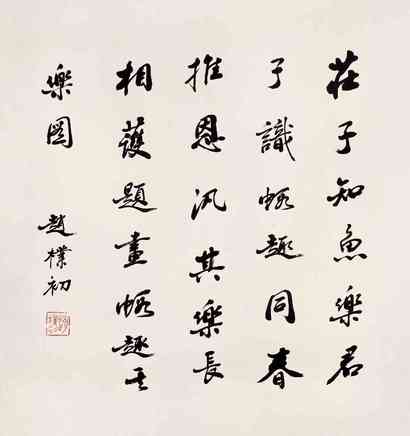 莊子知魚樂君
子識蝦趣同春
推恩汎其樂長
相護題畫蝦趣其
樂圖
趙樸初